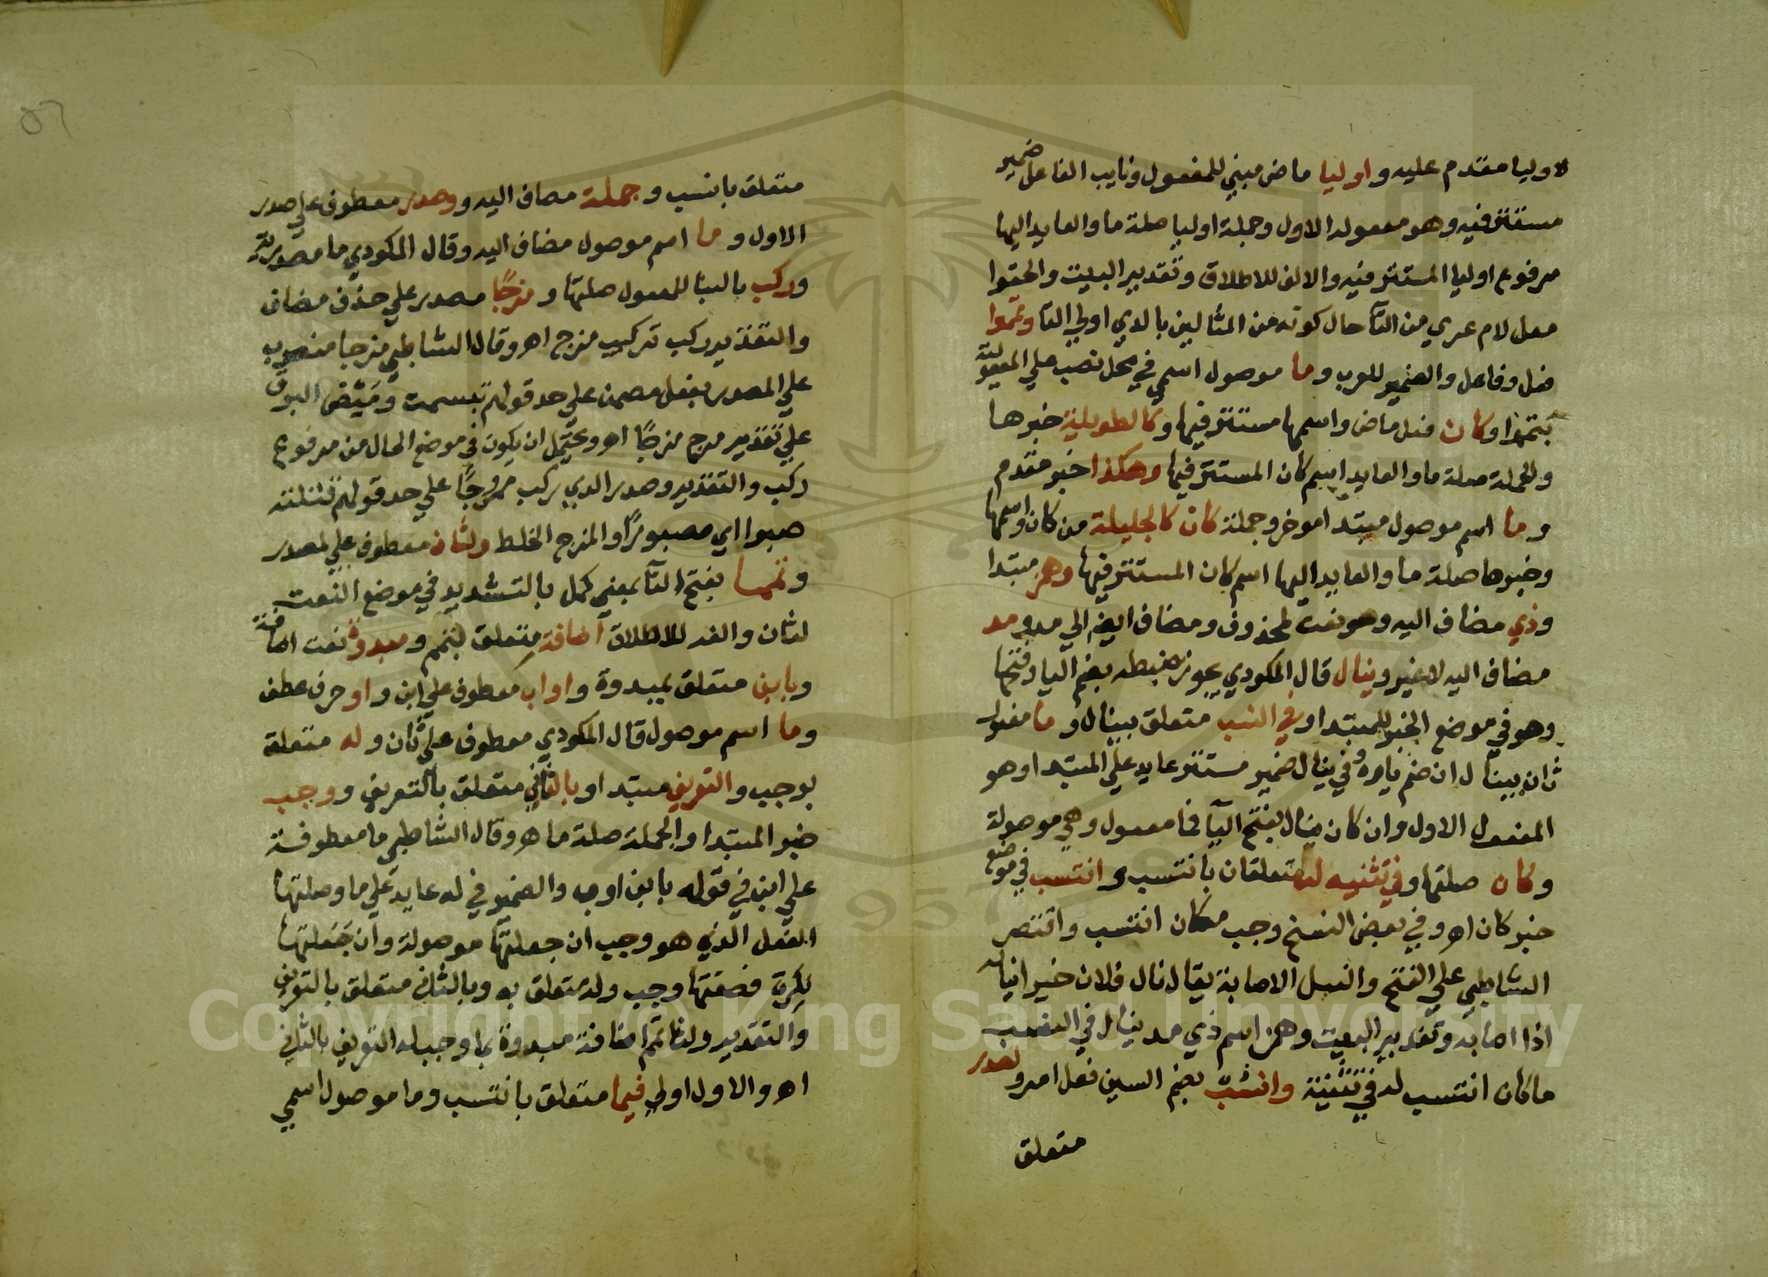 لاوليا مقدم عليه و اوليا ماض مبني للمفعول ونايب الفاعل ضمير
مستتر فيه وهو مفعوله الاول وجملة اوليا صلة ما والعايد اليها
مرفوع اوليا المستتر فيه والالف للاطلاق وتقدير البيت والحقوا
معل لام عري من التا حال كونه من المثالين بالذي اولي التا وتمموا
فعل وفاعل والضمير للعرب وما موصول اسمي في محل نصب علي المفعولية
بتمموا وكان فعل ماض واسمها مستتر فيها و كالطويلة خبرها
والجملة صلة ما والعايد اسم كان المستتر فيها وهكذا خبر مقدم
و ما اسم موصول مبتدا موخر وجملة كان كالجليلة من كان واسمها
وخبرها صلة ما والعايد اليها اسم كان المستتر فيها وهمز مبتدا
و ذي مضاف اليه وهو نعت لمحذوف ومضاف ايضا الي مد و مد
مضاف اليه لا غير وينال قال المكودي يجوز ضبطه بضم اليا وفتحها
وهو في موضع الخبر للمبتدا و في النسب متعلق بينال و ما مفعول
ثان بينال ان ضم ياوه وفي ينال ضمير مستتر عايد علي المبتدا وهو
المفعول الاول وان كان ينال بفتح اليا فما مفعول وهي موصولة
و كان صلتها و في تثنيه له متعلقان بانتسب و انتسب في موضع
خبر كان اه وفي بعض النسخ وجب مكان انتسب واقتصر
الشاطبي علي الفتح والنيل الاصابة يقال نال فلان خيرا يناله
اذا اصابه وتقدير البيت وهمز اسم ذي مد ينال في النسب
ما كان انتسب له في تثنية وانسب بضم السين فعل امر و لصدر
متعلق
متعلق بانسب و جملة مضاف اليه و وصدر معطوف علي صدر
الاول و ما اسم موصول مضاف اليه وقال المكودي ما مصدرية
و ركب بالبنا للمفعول صلتها و مزجا مصدر علي حذف مضاف
والتقدير ركب تركيب مزج اه وقال الشاطبي مزجا منصوب
علي المصدر بفعل مضمن علي حد قولهم تبسمت وميض البرق
علي تقدير مزج مزجا اه ويحتمل ان يكون في موضع الحال من مرفوع
ركب والتقدير وصدر الذي ركب ممزوجا علي حد قولهم قتلته
صبرا اي مصبورا والمزج الخلط ولثان معطوف علي لصدر
و تمما بفتح التا بمعني كمل بالتشديد في موضع النعت
لثان والفه للاطلاق اضافة متعلق بتمم و مبدوة نعت اضافة
و بابن متعلق بمبدوة و او اب معطوف علي ابن و او حرف عطف
و ما اسم موصول قال المكودي معطوف علي ثان و له متعلقة
بوجب و التعريف مبتدا و بالثاني متعلق بالتعريف و وجب
خبر المبتدا والجملة صلة ما اه وقال الشاطبي ما معطوفة
علي ابن في قوله بابن او اب والضمير في له عايد علي ما وصلتها
الفعل الذي هو وجب ان جعلتها موصولة وان جعلتها
نكرة فصفتها وجب وله متعلق به وبالثاني متعلق بالتعريف
والتقدير ولثان تمم اضافة مبدوة بما وجب له التعريف بالثاني
اه والاول اولي فيما متعلق بانتسب وما موصول اسمي